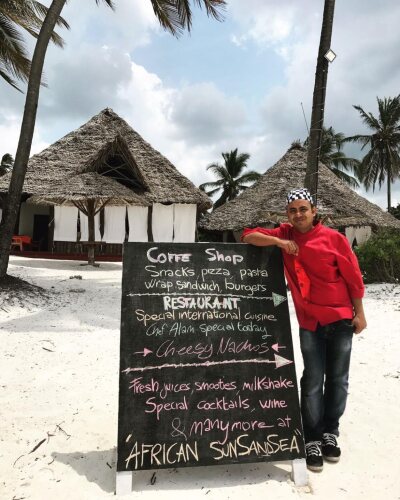 COFFE SHOP
Snacks, pizza, pasta
Wrap sandwich, burgers
RESTAURANT
Special international cuisine
Chef Alam Special today
Cheesy Nachos
Fresh juices smootes, milkshake
Special cocktails, wine
& many more at
"AFRICAN SUNSANDSEA"